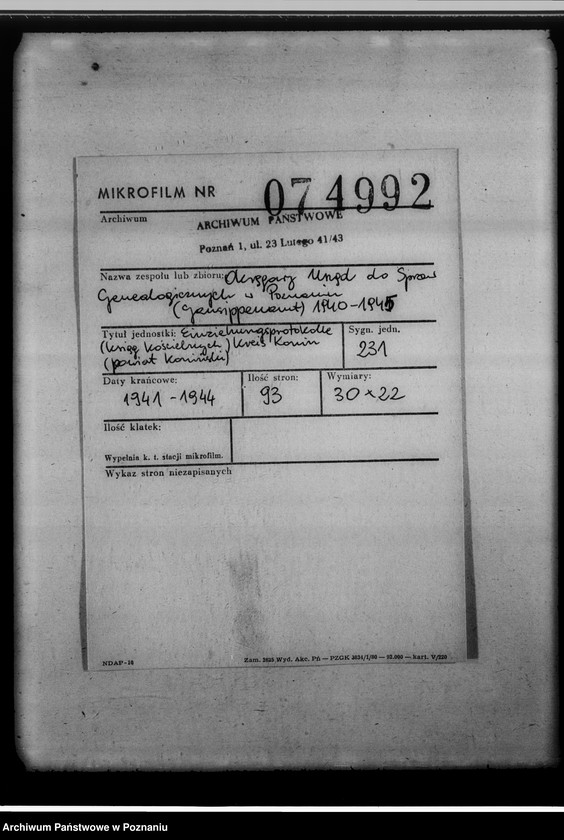 MIKROFILM NR 074992
Archiwum
ARCHIWUM PAŃSTWOWE
Poznań 1, ul. 23 Lutego 41/43
Nazwa zespołu lub zbioru: Okręgowy Urząd do Spraw
Genealogicznych w Poznaniu
(Gausippenamt) 1940-1945
Tytuł jednostki: Einziehungsprotokolle
(ksiąg kościelnych) Kreis Konin
(powiat Koniński)
Sygn. jedn.
231
Daty krańcowe:
1941-1944
Ilość stron:
93
Wymiary:
30×22
Ilość klatek:
Wypełnia k. t. stacji mikrofilm.
Wykaz stron niezapisanych
NDAP-18
Zam. 2625 Wyd. Akc. Pń — PZGK 2624/I/80 — 82.000 — kart. V/220
Archiwum Państwowe w Poznaniu